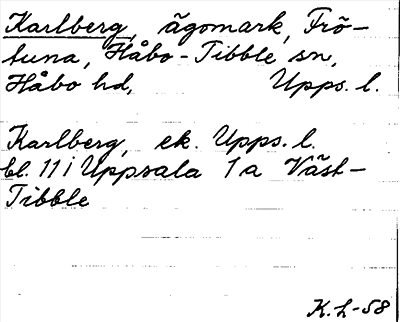 Karlberg, ägomark, Frö-
tuna, Håbo-Tibble sn,
Håbo hd, Upps. l.
Karlberg, ek. Upps. l.
bl. 11 i Uppsala 1a Väst-
Tibble
K.L-58